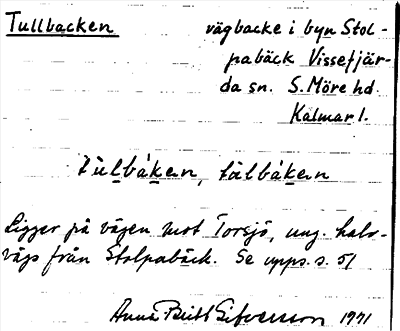 Tullbacken
vägbacke i byn Stol-
pabäck Vissefjär-
da sn. S. Möre hd.
Kalmar l.
tùlbáken, tälbáken
Ligger på vägen mot Torsjö, ung. halv-
vägs från Stolpabäck. Se upps. s. 51
Anna Britt Sifvensson 1971